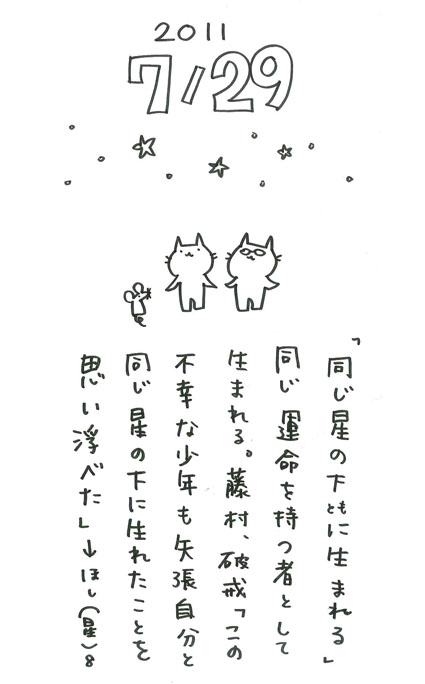 2011
7/29
「同じ星の下ともに生まれる」
同じ運命を持つ者として
生まれる。藤村、破戒「この
不幸な少年も矢張自分と
同じ星の下に生れたことを
思い浮べた」↓ほし(星)8